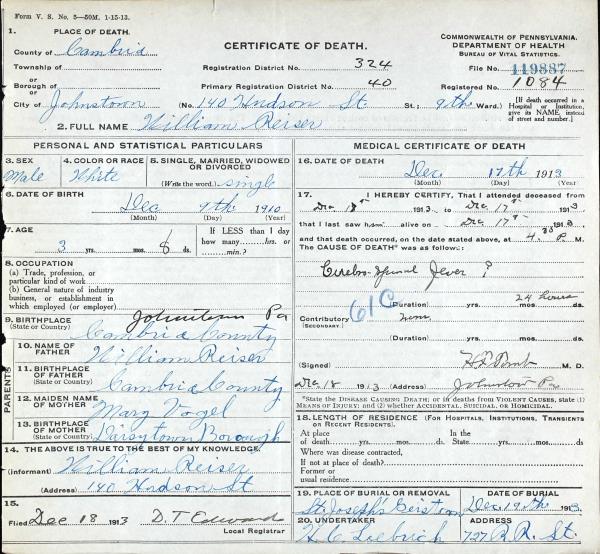 Form V. S. No. 5—50M. 1-15-13.
1. PLACE OF DEATH.
County of Cambria
Township of
or
Borough of
or
City of Johnstown
CERTIFICATE OF DEATH.
Registration District No. 324
Primary Registration District No. 40
(No. 140 Hudson St. St.; 9th Ward.)
COMMONWEALTH OF PENNSYLVANIA.
DEPARTMENT OF HEALTH
BUREAU OF VITAL STATISTICS.
File No. 119887
Registered No. 1084
[If death occurred in a Hospital or Institution, give its NAME, instead of street and number.]
2. FULL NAME William Reiser
PERSONAL AND STATISTICAL PARTICULARS
3. SEX
Male
4. COLOR OR RACE
White
5. SINGLE, MARRIED, WIDOWED
OR DIVORCED
(Write the word.) single
6. DATE OF BIRTH
Dec 9th 1910
(Month) (Day) (Year)
7. AGE
3 yrs. mos. 8 ds.
If LESS than 1 day
how many....hrs. or
....min.?
8. OCCUPATION
(a) Trade, profession, or
particular kind of work
(b) General nature of industry
business, or establishment in
which employed (or employer)
9. BIRTHPLACE
(State or Country)
Johnstown Pa
Cambria County
10. NAME OF
FATHER
William Reiser
PARENTS
11. BIRTHPLACE
OF FATHER
(State or Country)
Cambria County
12. MAIDEN NAME
OF MOTHER
Mary Vogel
13. BIRTHPLACE
OF MOTHER
(State or Country)
Daisytown Borough
14. THE ABOVE IS TRUE TO THE BEST OF MY KNOWLEDGE
(informant) William Reiser
(Address) 140 Hudson St
15.
Filed Dec 18 1913 D. T. Edwards
MEDICAL CERTIFICATE OF DEATH
16. DATE OF DEATH
Dec. 17th 1913
(Month) (Day) (Year)
17. I HEREBY CERTIFY, That I attended deceased from
Dec 17th 1913 to Dec 17th 1913
that I last saw him alive on Dec 17th 1913
and that death occurred, on the date stated above, at 4.30 P. M.
The CAUSE OF DEATH* was as follows:
Cerebro-Spinal Fever ?
(Duration) yrs. mos. ds. 24 hours
61C
Contributory
(SECONDARY.)
(Duration) yrs. mos. ds.
(Signed) M. D.
Dec 18 1913 (Address) Johnstown Pa
*State the DISEASE CAUSING DEATH; or in deaths from VIOLENT CAUSES, state (1)
MEANS OF INJURY; and (2) whether ACCIDENTAL, SUICIDAL, OR HOMICIDAL.
18. LENGTH OF RESIDENCE (FOR HOSPITALS, INSTITUTIONS, TRANSIENTS
OR RECENT RESIDENTS).
At place In the
of death......yrs......mos......ds. State......yrs......mos......ds.
Where was disease contracted,
If not at place of death?
Former or
usual residence
19. PLACE OF BURIAL OR REMOVAL
St. Joseph's Geistown
DATE OF BURIAL
Dec. 19th 1913
20. UNDERTAKER
ADDRESS
727 R. R. St.